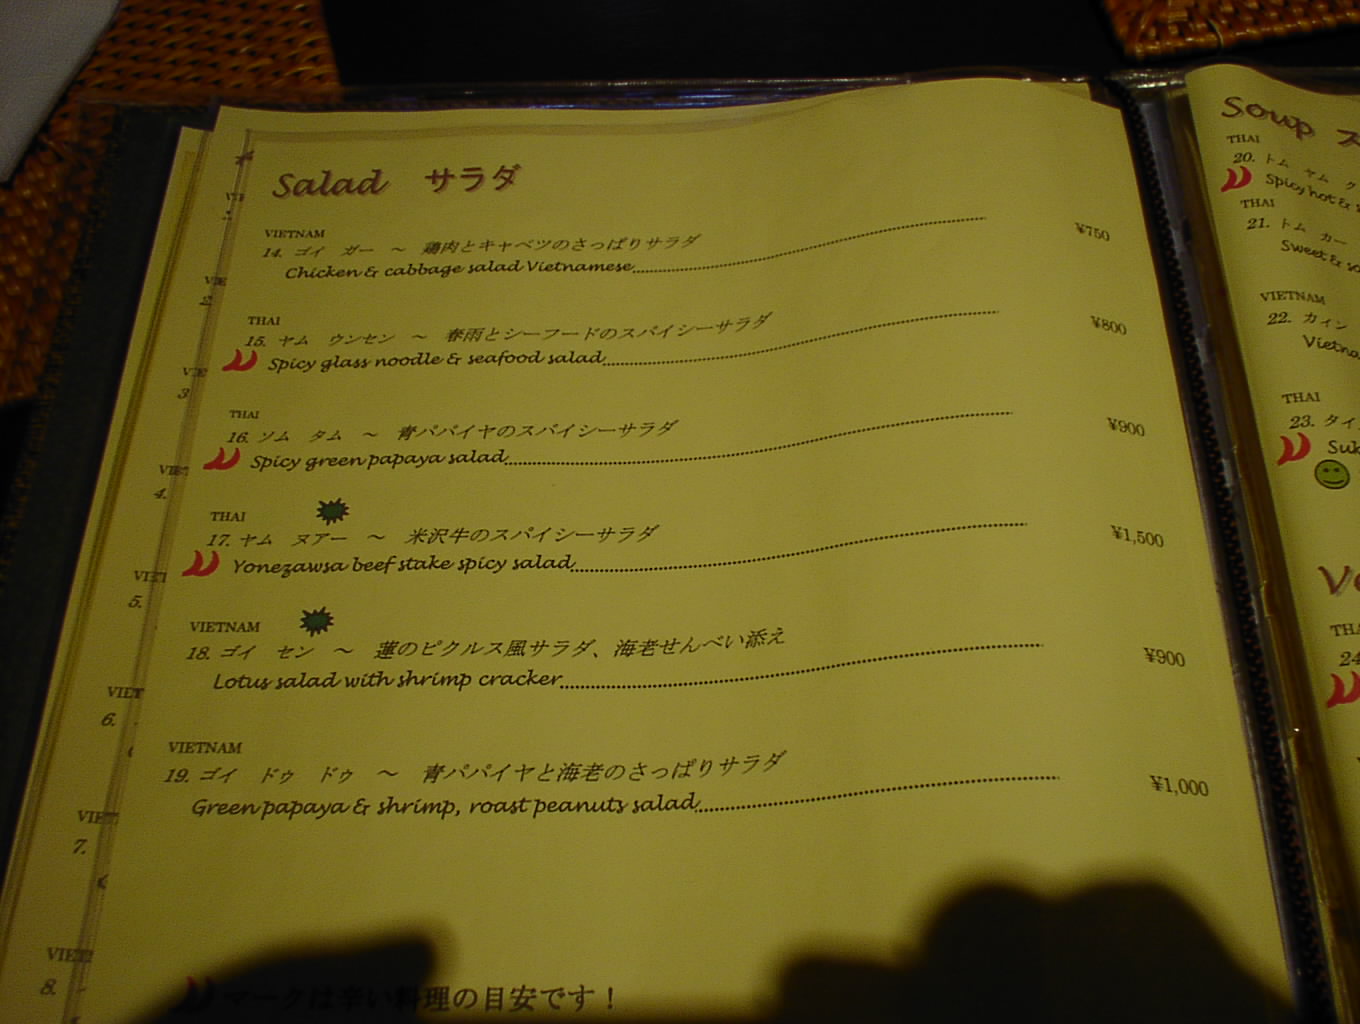 Salad サラダ
VIETNAM
14. ゴイ ガー ～ 鶏肉とキャベツのさっぱりサラダ ¥750
Chicken & cabbage salad Vietnamese
THAI
15. ヤム ウンセン ～ 春雨とシーフードのスパイシーサラダ ¥800
Spicy glass noodle & seafood salad
THAI
16. ソム タム ～ 青パパイヤのスパイシーサラダ ¥900
Spicy green papaya salad
THAI
17. ヤム ヌアー ～ 米沢牛のスパイシーサラダ ¥1,500
Yonezawsa beef stake spicy salad
VIETNAM
18. ゴイ セン ～ 蓮のピクルス風サラダ、海老せんべい添え ¥900
Lotus salad with shrimp cracker
VIETNAM
19. ゴイ ドゥ ドゥ ～ 青パパイヤと海老のさっぱりサラダ ¥1,000
Green papaya & shrimp, roast peanuts salad
マークは辛い料理の目安です！
Soup
THAI
20. トム ヤム ク
Spicy hot &
THAI
21. トム カー
Sweet &
VIETNAM
22. カイン
THAI
23. タイ
24
2.
3
4.
5.
6.
7.
8.